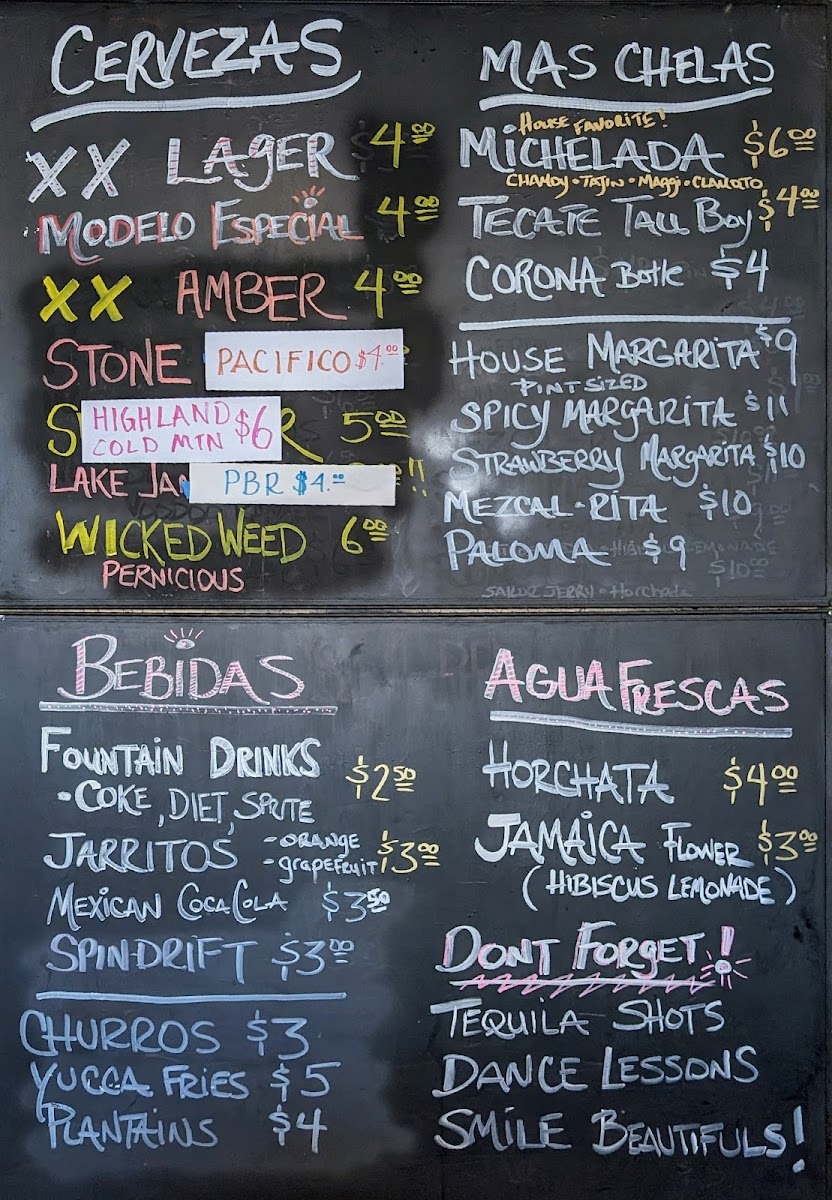 CERVEZAS
XX LAGER 4.00
MODELO ESPECIAL 4.00
XX AMBER 4.00
STONE PACIFICO $4.00
HIGHLAND $6
COLD MTN
5.00
LAKE JA PBR $4.00 !!
WICKED WEED 6.00
PERNICIOUS
MAS CHELAS
HOUSE FAVORITE!
MICHELADA $6.00
CHAMOY • TAJIN • MAGGI • CLAMATO
TECATE TALL BOY $4.00
CORONA Bottle $4
HOUSE MARGARITA $9
PINT SIZED
SPICY MARGARITA $11
STRAWBERRY MARGARITA $10
MEZCAL-RITA $10
PALOMA $9
SAILOR JERRY • Horchata
BEBIDAS
FOUNTAIN DRINKS $2.50
• COKE, DIET, SPRITE
JARRITOS - ORANGE $3.00
- grapefruit
MEXICAN COCA COLA $3.50
SPINDRIFT $3.00
CHURROS $3
YUCCA FRIES $5
PLANTAINS $4
AGUA FRESCAS
HORCHATA $4.00
JAMAICA FLOWER $3.00
(HIBISCUS LEMONADE)
DONT FORGET!
TEQUILA SHOTS
DANCE LESSONS
SMILE BEAUTIFULS!